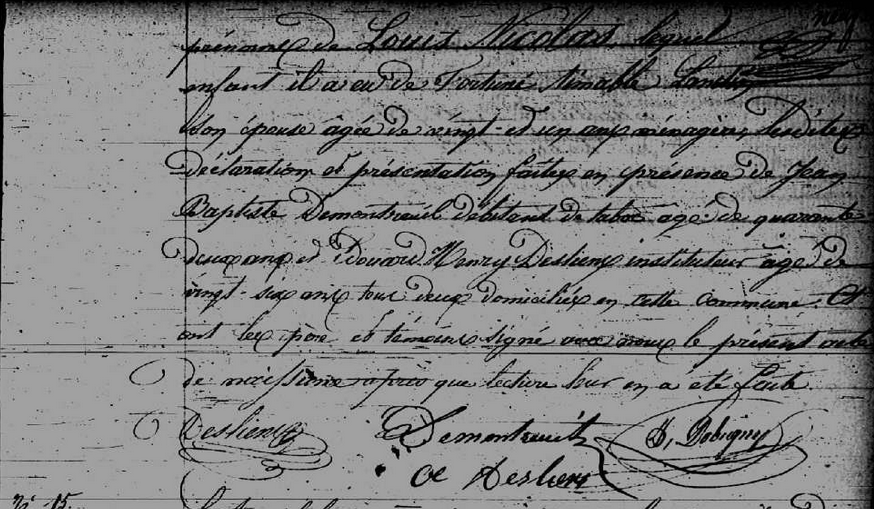 prénoms de Louis Nicolas lequel
enfant il a eu de Fortuné Aimable
Son épouse âgée de vingt-et un ans ménagère, lesdites
déclaration et présentation faites en présence de Jean
Baptiste Demontreuil débitant de tabac âgé de quarante
deux ans et Édouard Henry Desliens instituteur âgé de
vingt-six ans tous deux domiciliés en cette commune. Et
ont les père et témoins signé avec nous le présent acte
de naissance après que lecture leur en a été faite.
Desliens Demontreuil D, Dobigny
Desliens
N° 15.